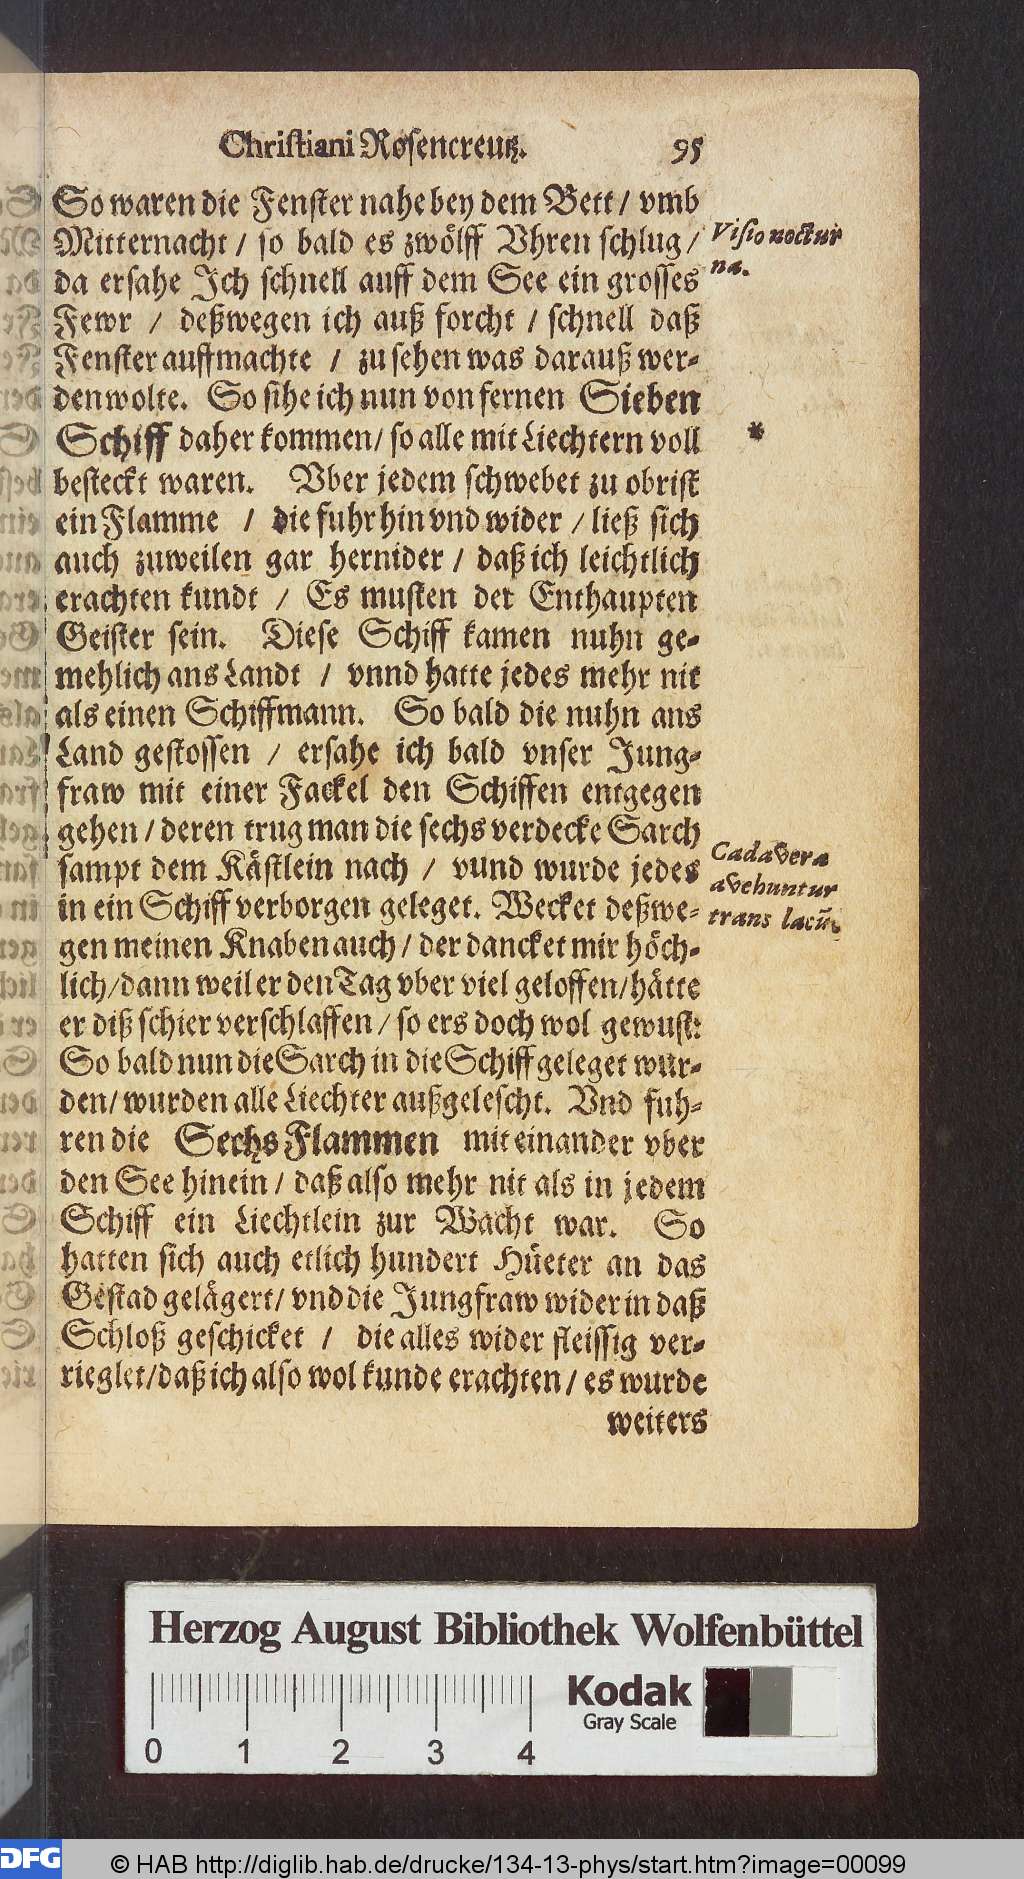 Christiani Rosencreutz. 95
So waren die Fenster nahe bey dem Bett / vmb
Mitternacht / so bald es zwölff Vhren schlug /
Visio noctur
na.
da ersahe Ich schnell auff dem See ein grosses
Fewr / deßwegen ich auß forcht / schnell daß
Fenster auffmachte / zu sehen was darauß wer-
den wolte. So sihe ich nun von fernen Sieben
Schiff daher kommen / so alle mit Liechtern voll
*
besteckt waren. Vber jedem schwebet zu obrist
ein Flamme / die fuhr hin vnd wider / ließ sich
auch zuweilen gar hernider / daß ich leichtlich
erachten kundt / Es musten der Enthaupten
Geister sein. Diese Schiff kamen nuhn ge-
mehlich ans Landt / vnnd hatte jedes mehr nit
als einen Schiffmann. So bald die nuhn ans
Land gestossen / ersahe ich bald vnser Jung-
fraw mit einer Fackel den Schiffen entgegen
gehen / deren trug man die sechs verdecke Sarch
sampt dem Kästlein nach / vund wurde jedes
Cadavera
avehuntur
trans lacũ.
in ein Schiff verborgen geleget. Wecket deßwe-
gen meinen Knaben auch / der dancket mir höch-
lich / dann weil er den Tag vber viel geloffen / hätte
er diß schier verschlaffen / so ers doch wol gewust:
So bald nun die Sarch in die Schiff geleget wur-
den / wurden alle Liechter außgelescht. Vnd fuh-
ren die Sechs Flammen mit einander vber
den See hinein / daß also mehr nit als in jedem
Schiff ein Liechtlein zur Wacht war. So
hatten sich auch etlich hundert Hüeter an das
Gestad gelägert / vnd die Jungfraw wider in daß
Schloß geschicket / die alles wider fleissig ver-
rieglet / daß ich also wol kunde erachten / es wurde
weiters
Herzog August Bibliothek Wolfenbüttel
Kodak
Gray Scale
0 1 2 3 4
DFG
© HAB http://diglib.hab.de/drucke/134-13-phys/start.htm?image=00099